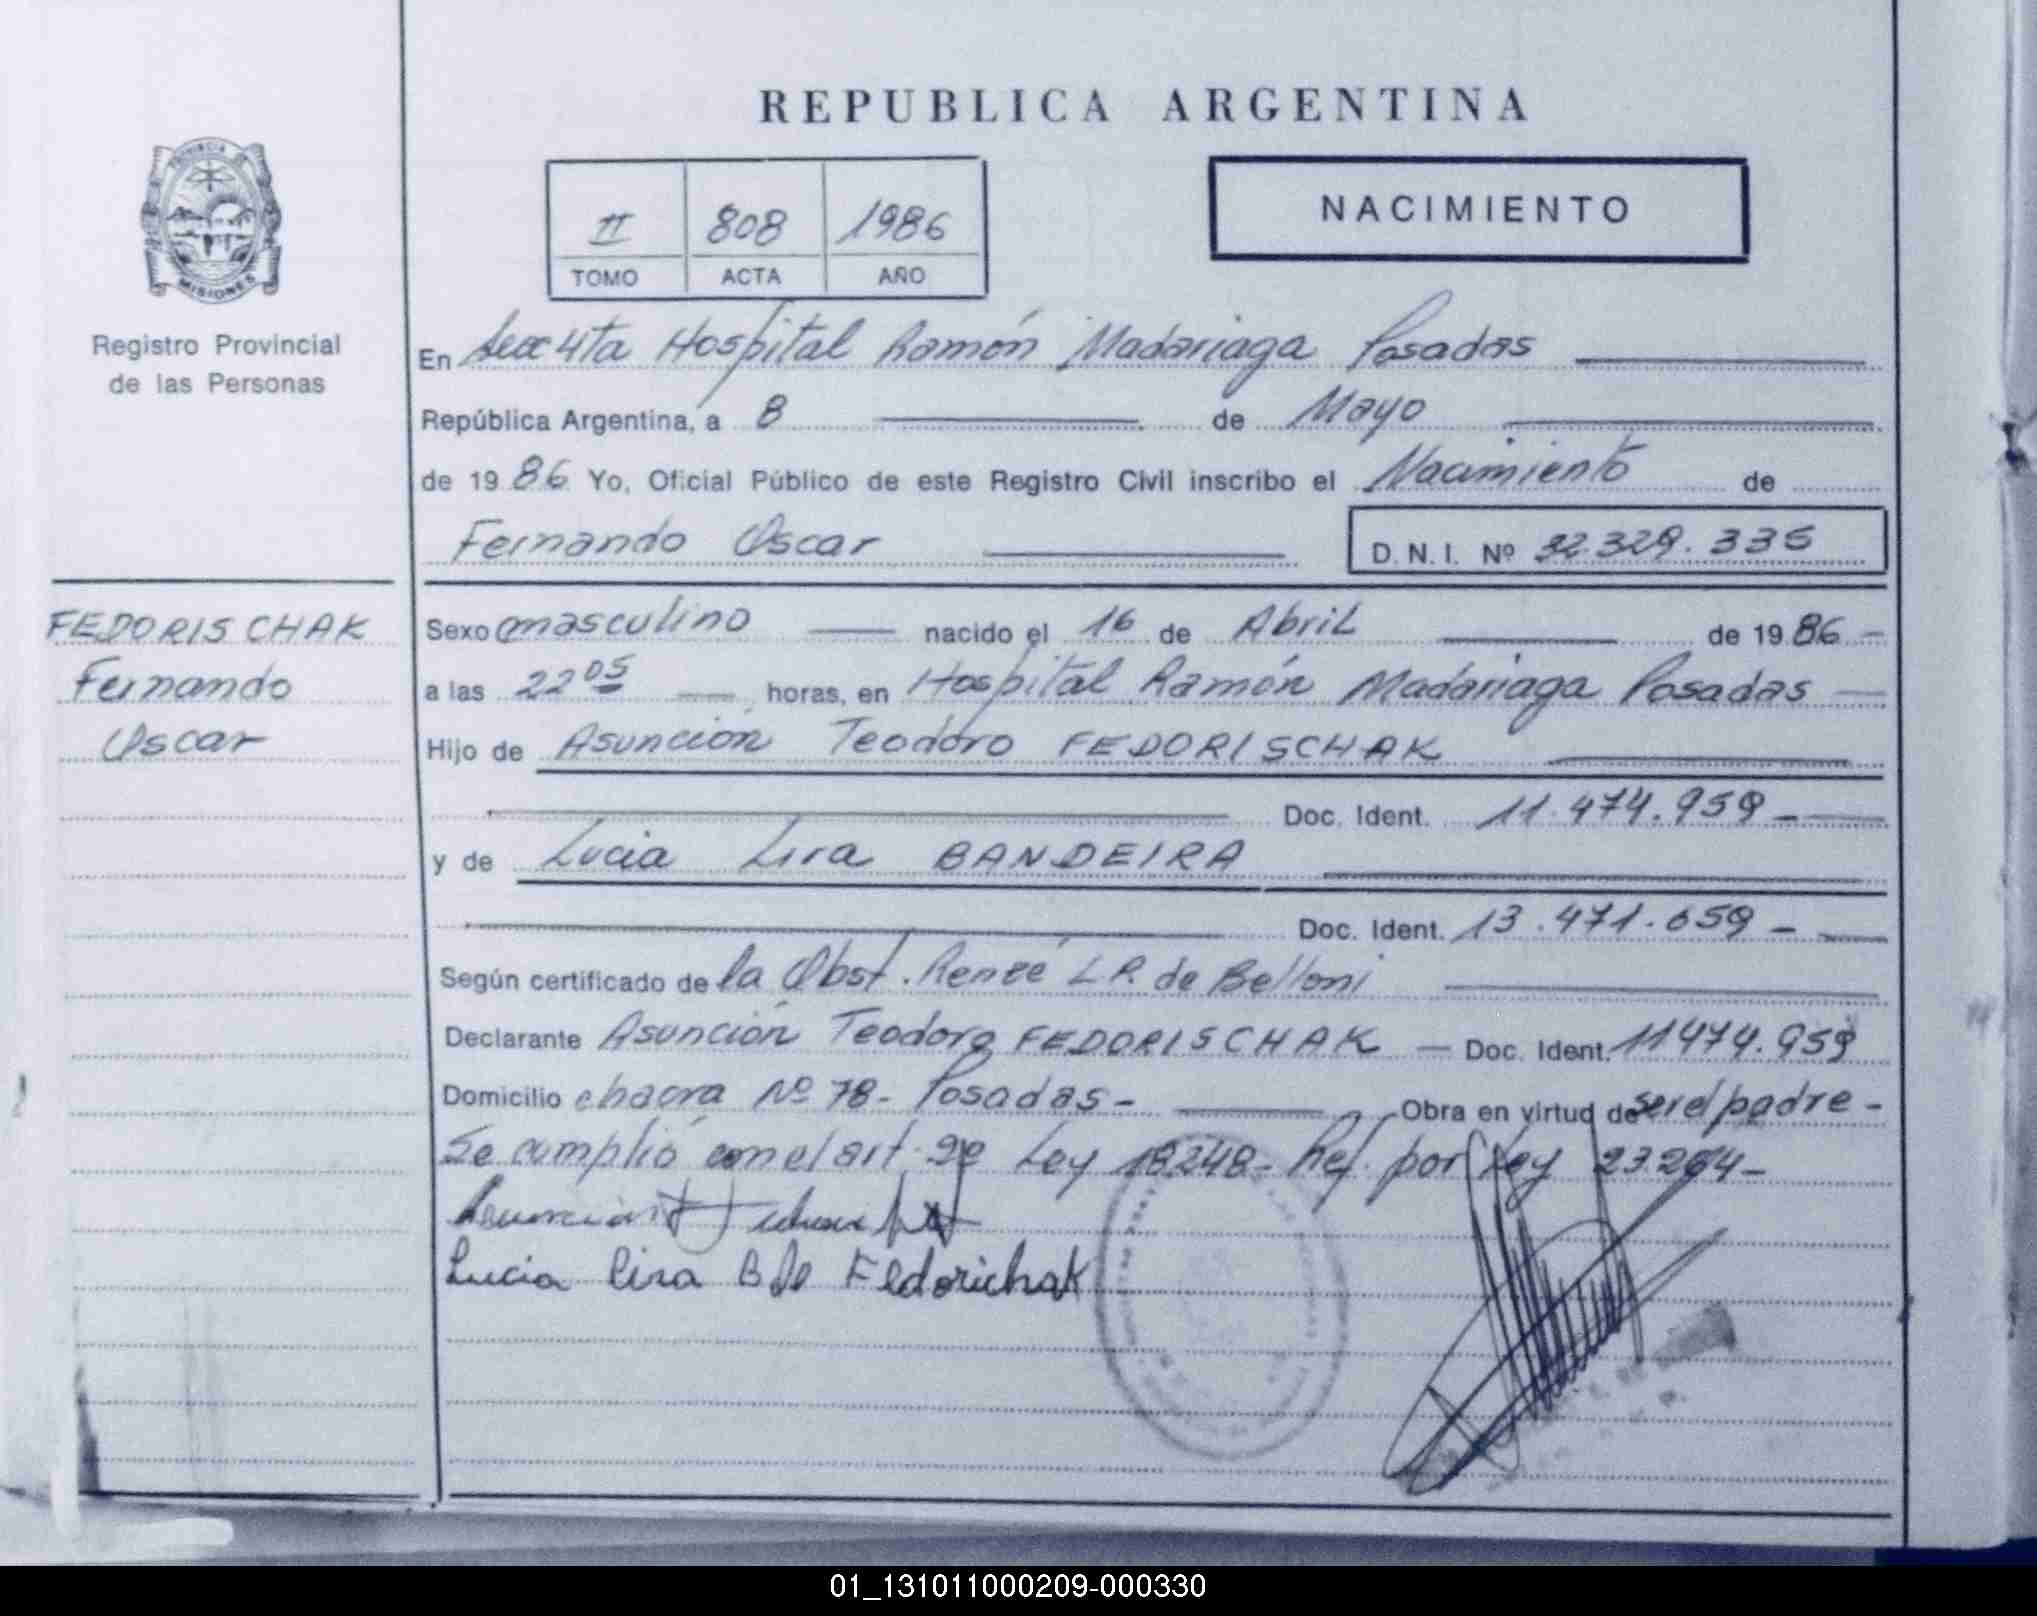 REPUBLICA ARGENTINA
PROVINCIA DE
MISIONES
Registro Provincial
de las Personas
II 808 1986
TOMO ACTA AÑO
NACIMIENTO
En Secc 4ta Hospital Ramón Madariaga Posadas
República Argentina, a 8 de Mayo
de 1986 Yo, Oficial Público de este Registro Civil inscribo el Nacimiento de
Fernando Oscar D.N.I. Nº 32.329.335
FEDORISCHAK
Fernando
Oscar
Sexo masculino nacido el 16 de Abril de 1986
a las 22 05 horas, en Hospital Ramón Madariaga Posadas
Hijo de Asunción Teodoro FEDORISCHAK
Doc. Ident. 11.474.959
y de Lucia Lira BANDEIRA
Doc. Ident. 13.471.659
Según certificado de la Obst. Renée L R. de Belloni
Declarante Asunción Teodoro FEDORISCHAK Doc. Ident. 11474.959
Domicilio chacra Nº 78 - Posadas - Obra en virtud de ser el padre -
Se cumplió con el art. 9º Ley 18.248 - Ref. por Ley 23.264 -
Lucia Lira B de Fedorichak
01_131011000209-000330